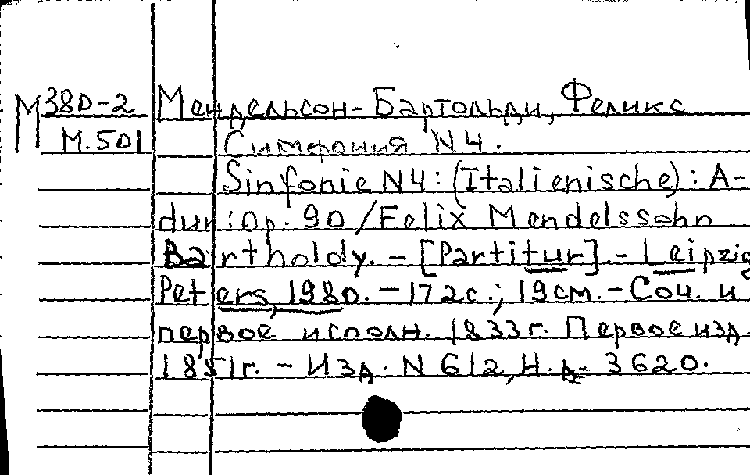 М 38D-2 Мендельсон-Бартольди, Феликс
М.501 Симфония N4.
Sinfonie N4: (Italienische): A-
dur: Op. 90 / Felix Mendelssohn
Bartholdy. - [Partitur]. - Leipzig
Peters, 1980. - 172с.; 19см. - Соч. и
первое исполн. 1833г. Первое изд.
1851г. - Изд. N 612, Н.д. 3620.